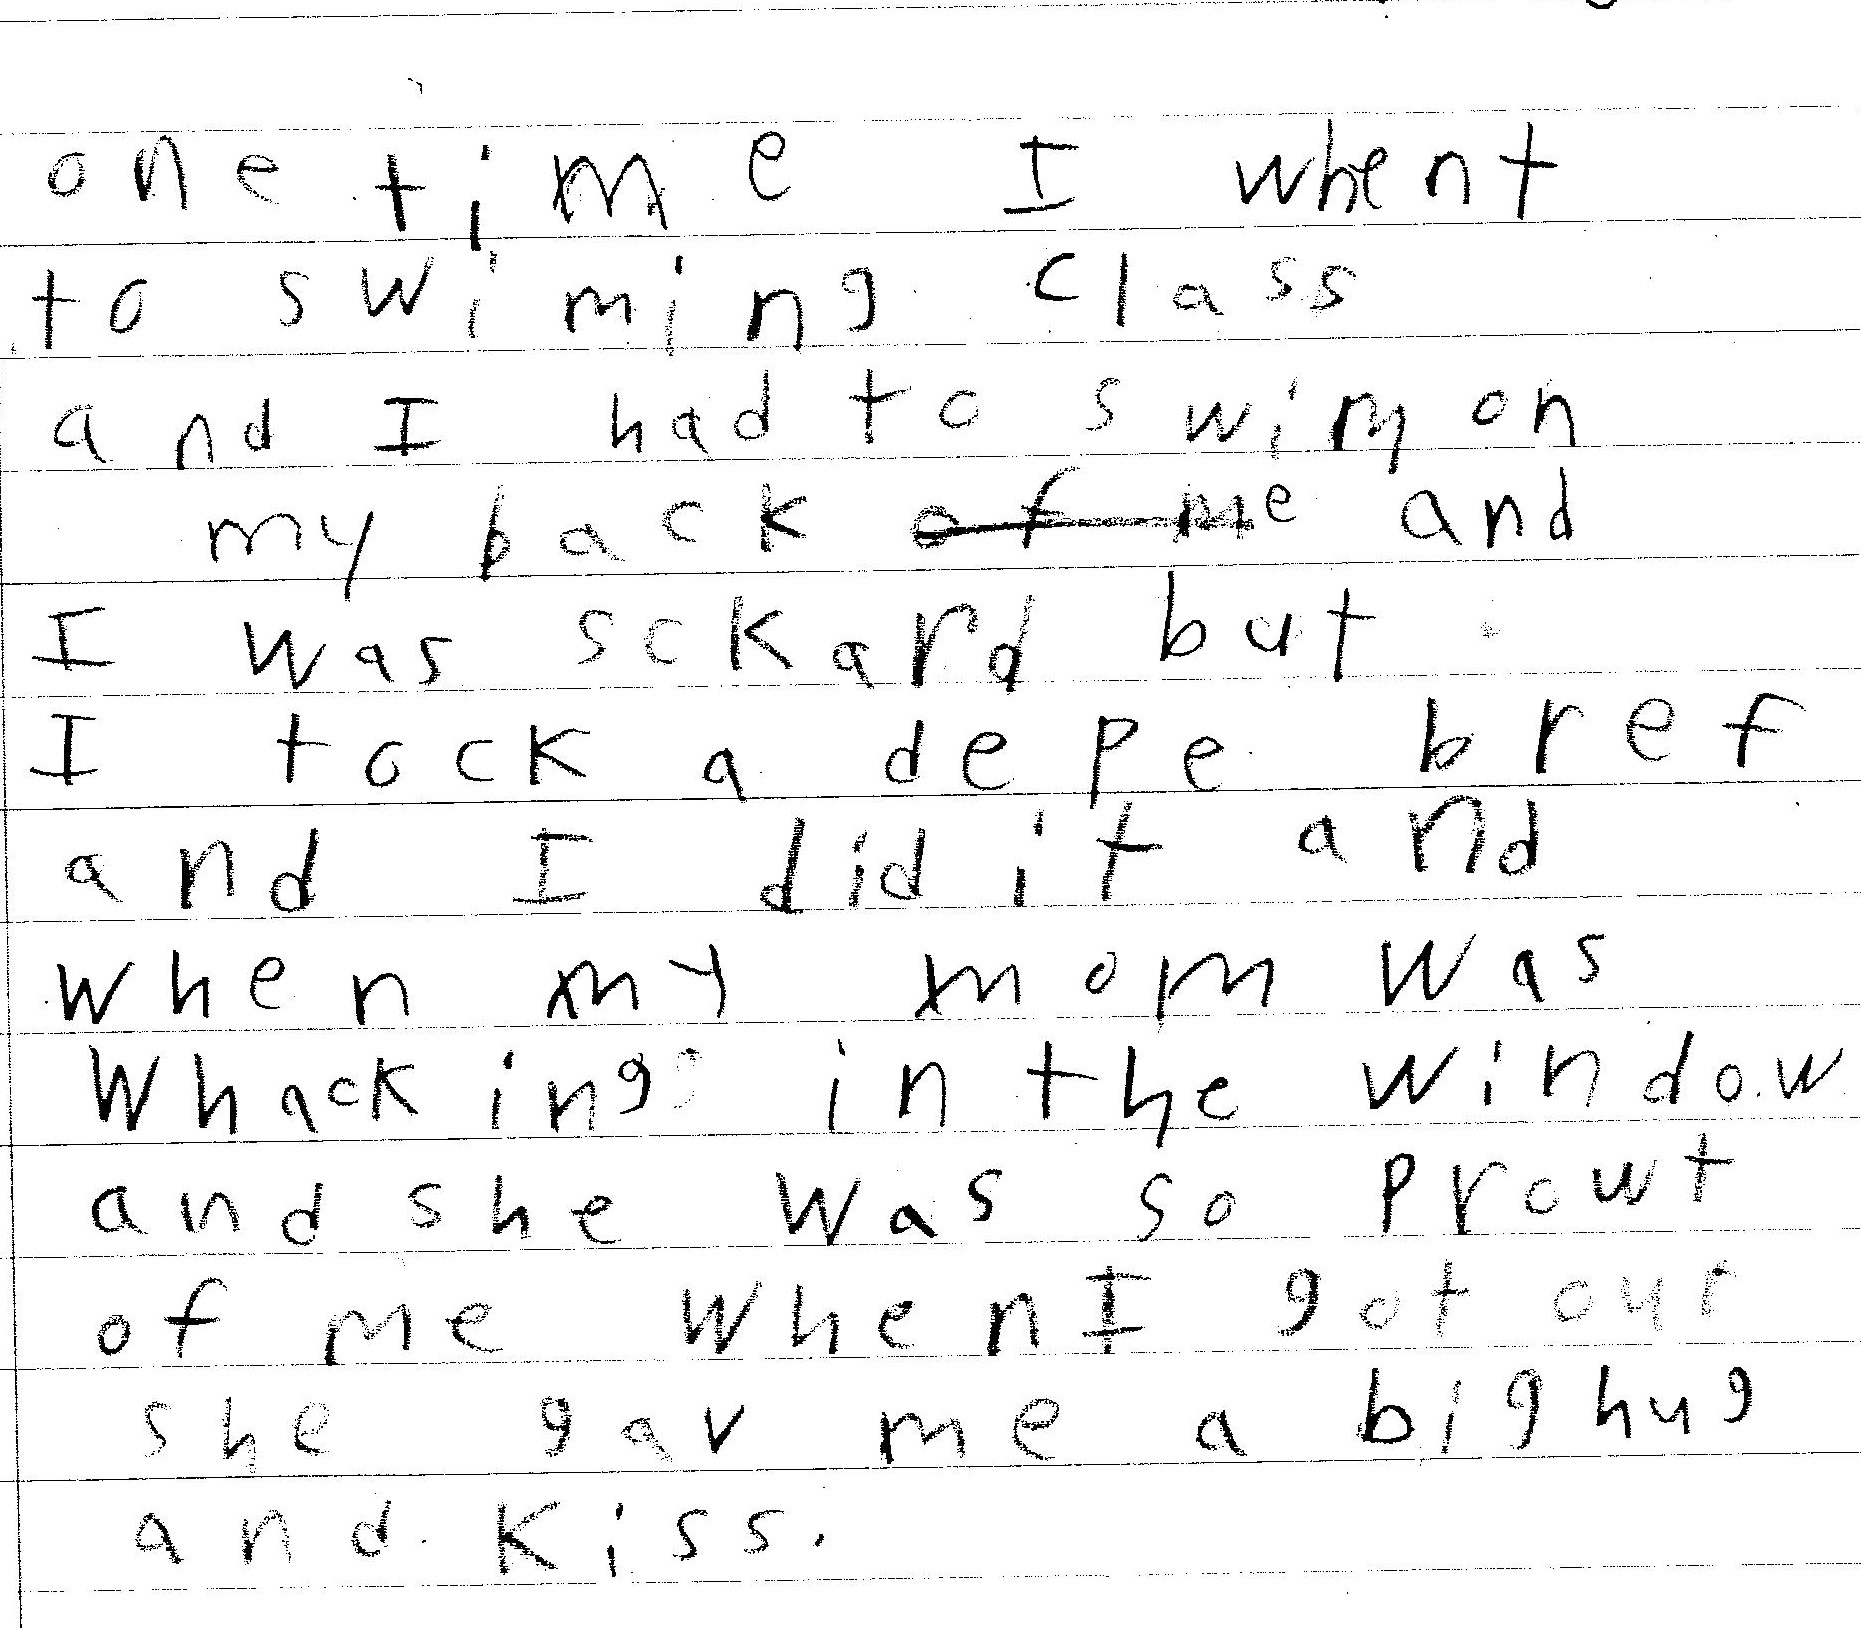 one time I whent
to swiming class
and I had to swim on
my back of me and
I was sckard but
I tock a depe bref
and I did it and
when my mom was
Whacking in the window
and she was so prowt
of me when I got out
she gav me a big hug
and kiss.